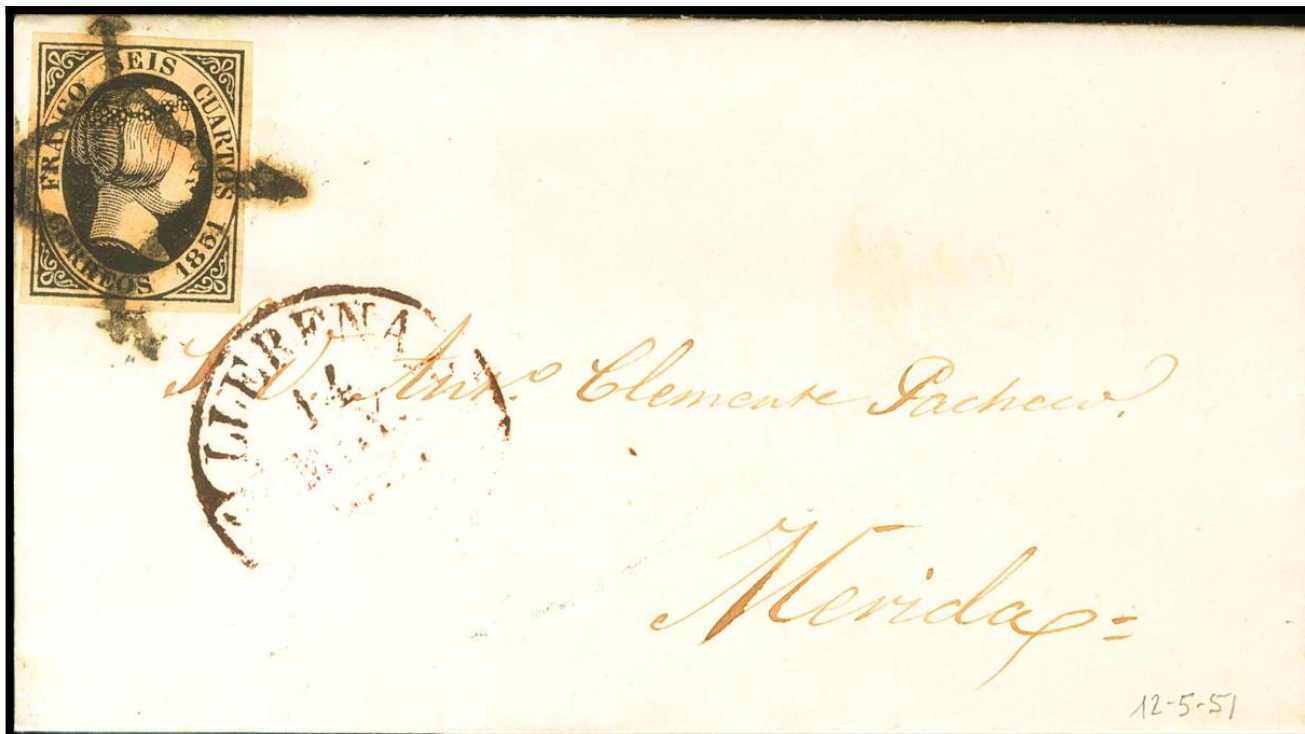 FRANCO SEIS CUARTOS
CORREOS 1851
LLERENA
14
S. D. Antº Clemente Pacheco.
Merida=
12-5-51